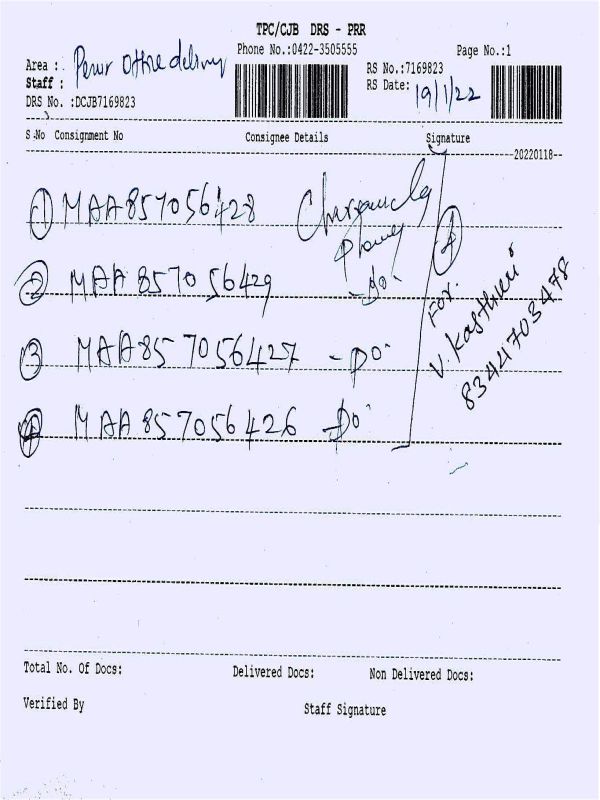 TPC/CJB DRS - PRR
Phone No.:0422-3505555
Page No.:1
Area : Perur Office delivery
Staff :
RS No.:7169823
RS Date: 19/1/22
DRS No. :DCJB7169823
S.No Consignment No Consignee Details Signature
--20220118--
1 MAA857056428
2 MAA857056429 -do-
3 MAA857056427 -Do-
4 MAA857056426 -Do-
4
For.
V. Kasthuri
8344703478
Total No. Of Docs: Delivered Docs: Non Delivered Docs:
Verified By Staff Signature